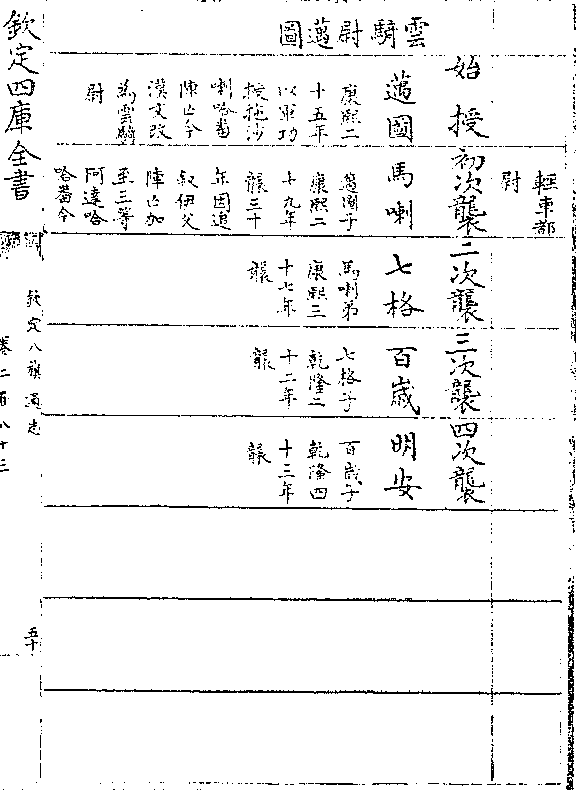 輕車都
尉
始授
初次襲
二次襲
三次襲
四次襲
雲騎尉邁圖
邁國
康熙二
十五年
以軍功
授拖沙
喇哈番
陣亡今
漢文改
為雲騎
尉
馬喇
邁圖子
康熙二
十九年
襲三十
年因追
敘伊父
陣亡加
至三等
阿達哈
哈番今
七格
馬喇弟
康熙三
十七年
襲
百歲
七格子
乾隆二
十二年
襲
明安
百歲子
乾隆四
十三年
襲
欽定四庫全書
欽定八旗通志
卷二百八十三
五十